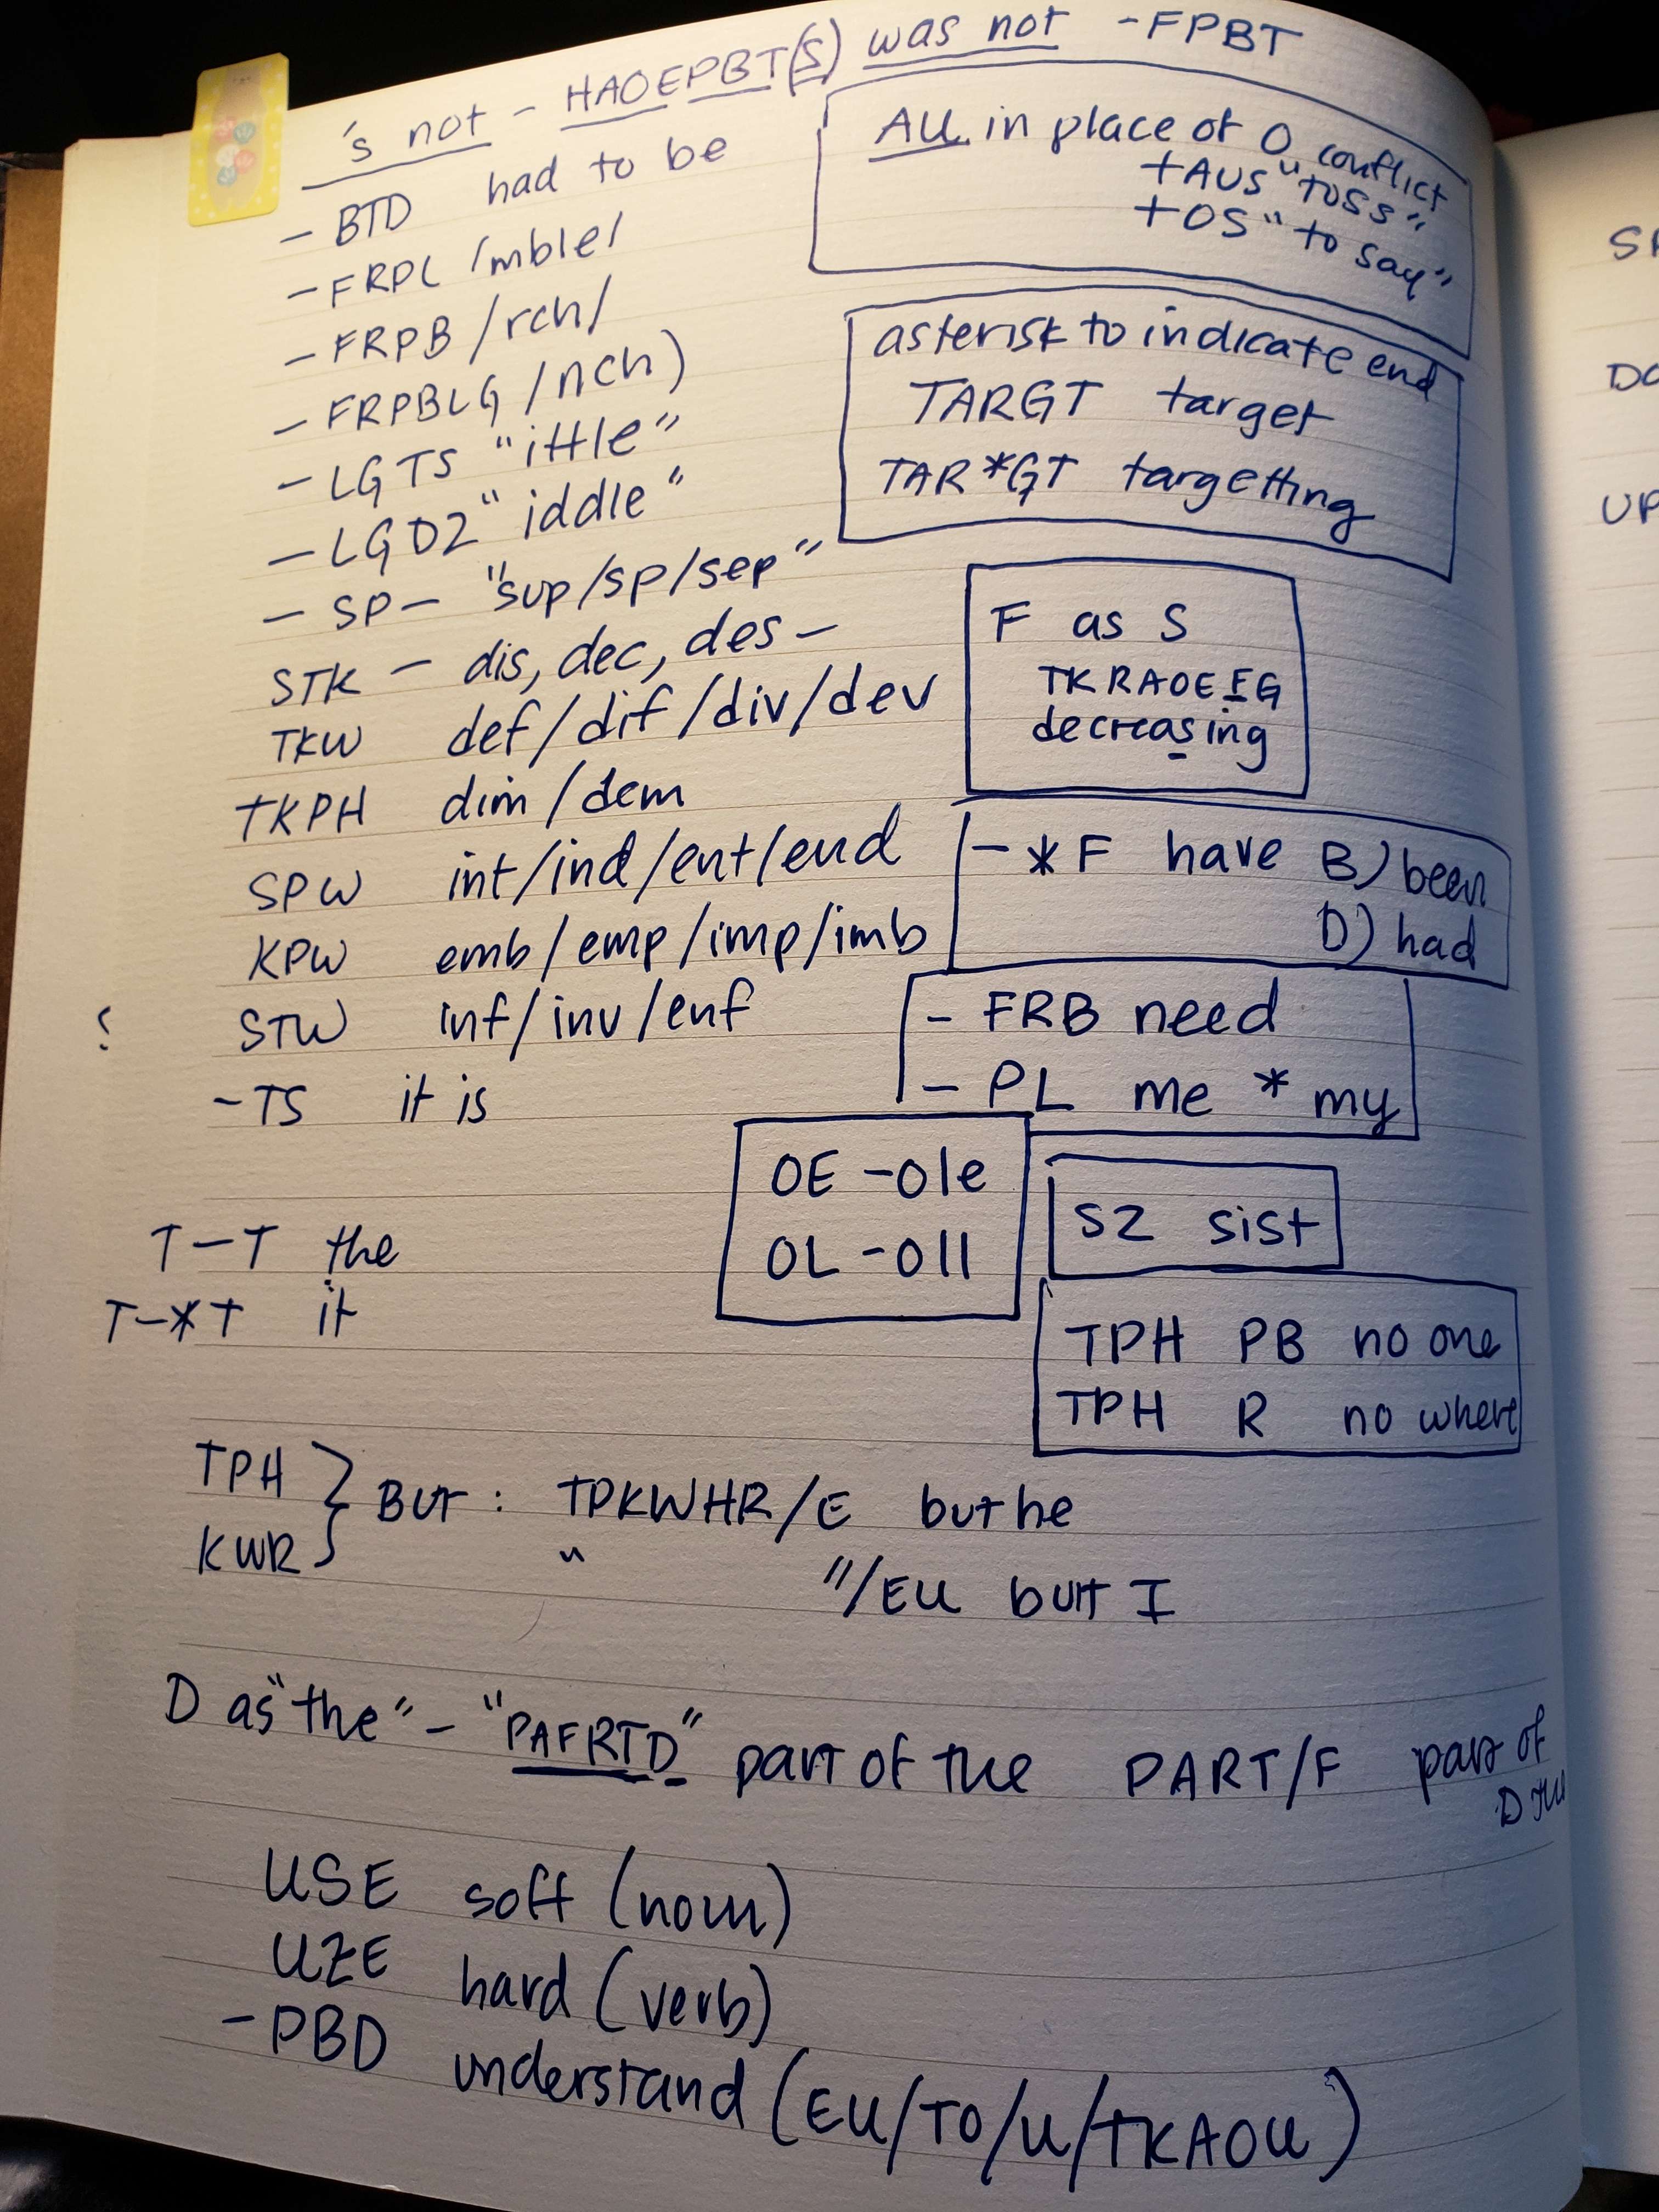 's not - HAOEPBT(S) was not -FPBT
- BTD had to be
- FRPL /mble/
- FRPB /rch/
- FRPBLG /nch)
- LGTS "ittle"
- LGDZ "iddle"
- SP- "sup/sp/sep"
STK - dis, dec, des-
TKW def/dif/div/dev
TKPH dim/dem
SPW int/ind/ent/end
KPW emb/emp/imp/imb
STW inf/inv/enf
-TS it is
T-T the
T-*T it
AU in place of O conflict
TAUS "toss"
TOS "to say"
asterisk to indicate end
TARGT target
TAR*GT targetting
F as S
TKRAOEFG
decreasing
-*F have B) been
D) had
- FRB need
- PL me * my
OE -ole
OL -oll
SZ sist
TPH PB no one
TPH R no where
TPH
KWR } BUT : TPKWHR/E but he
" "/EU but I
D as "the" - "PAFRTD" part of the PART/F part of
D the
USE soft (noun)
UZE hard (verb)
-PBD understand (EU/TO/U/TKAOU)
SP
DO
UP